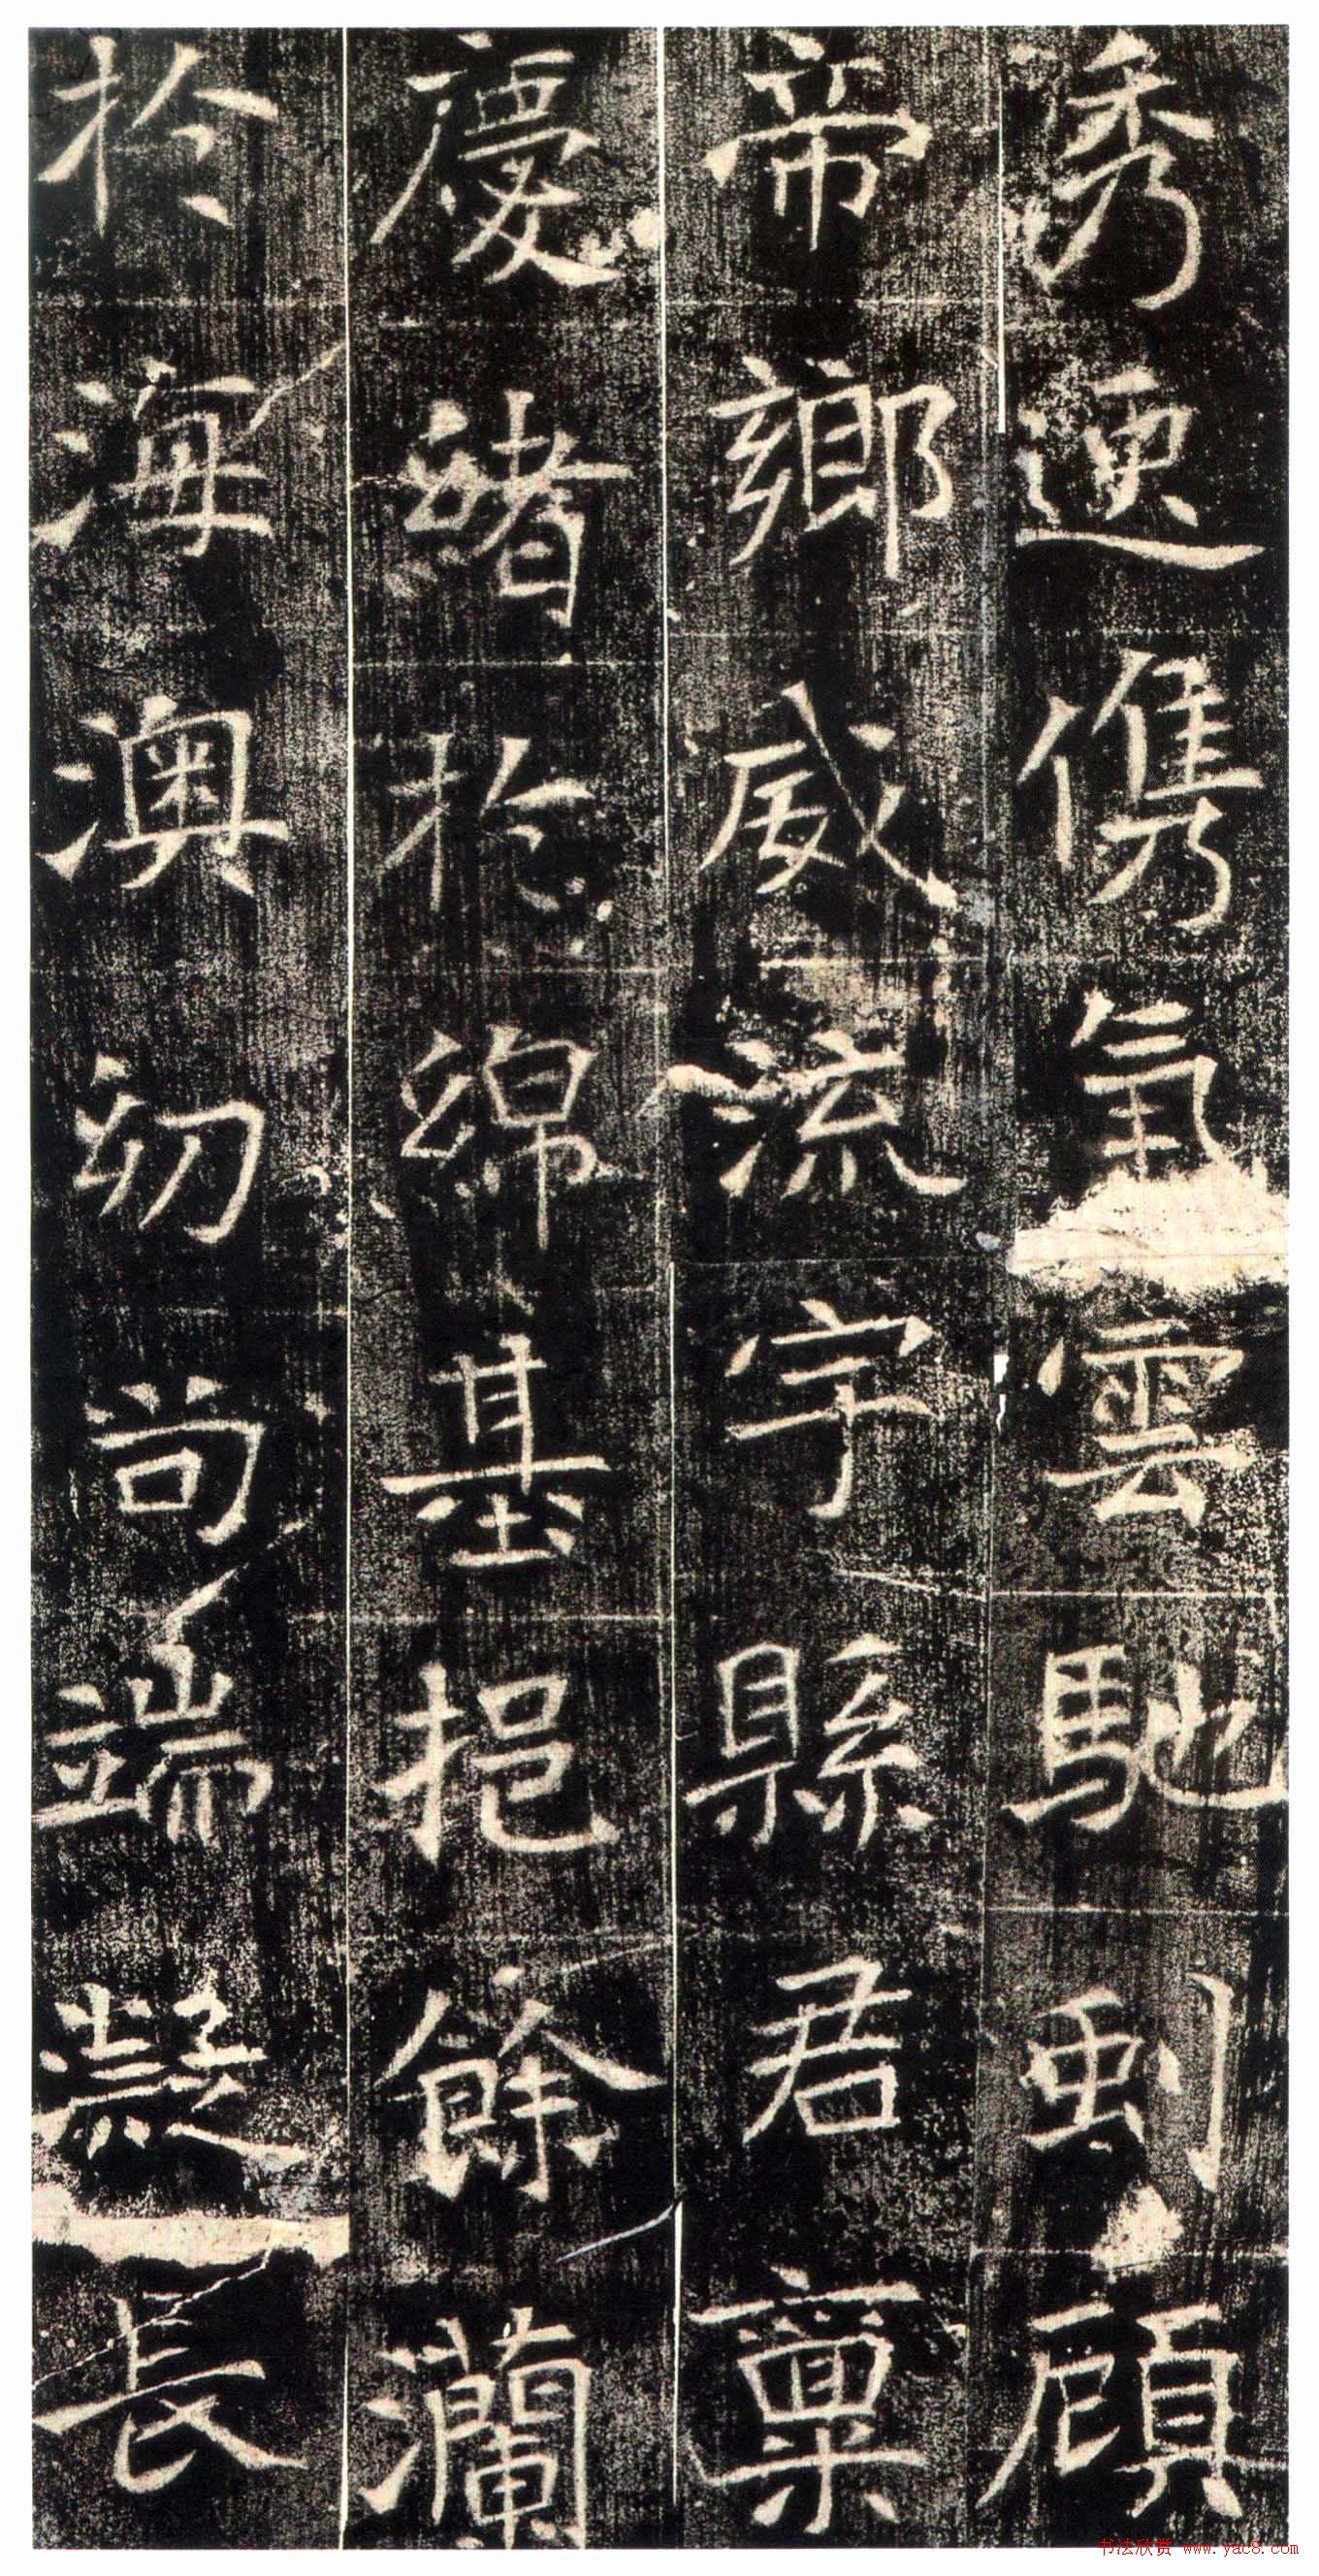 秀逸儁氣雲馳虯顧
帝鄉威流宇縣君稟
慶緒於綿基挹餘瀾
於海澳幼尚端凝長
书法欣赏 www.yac8.com